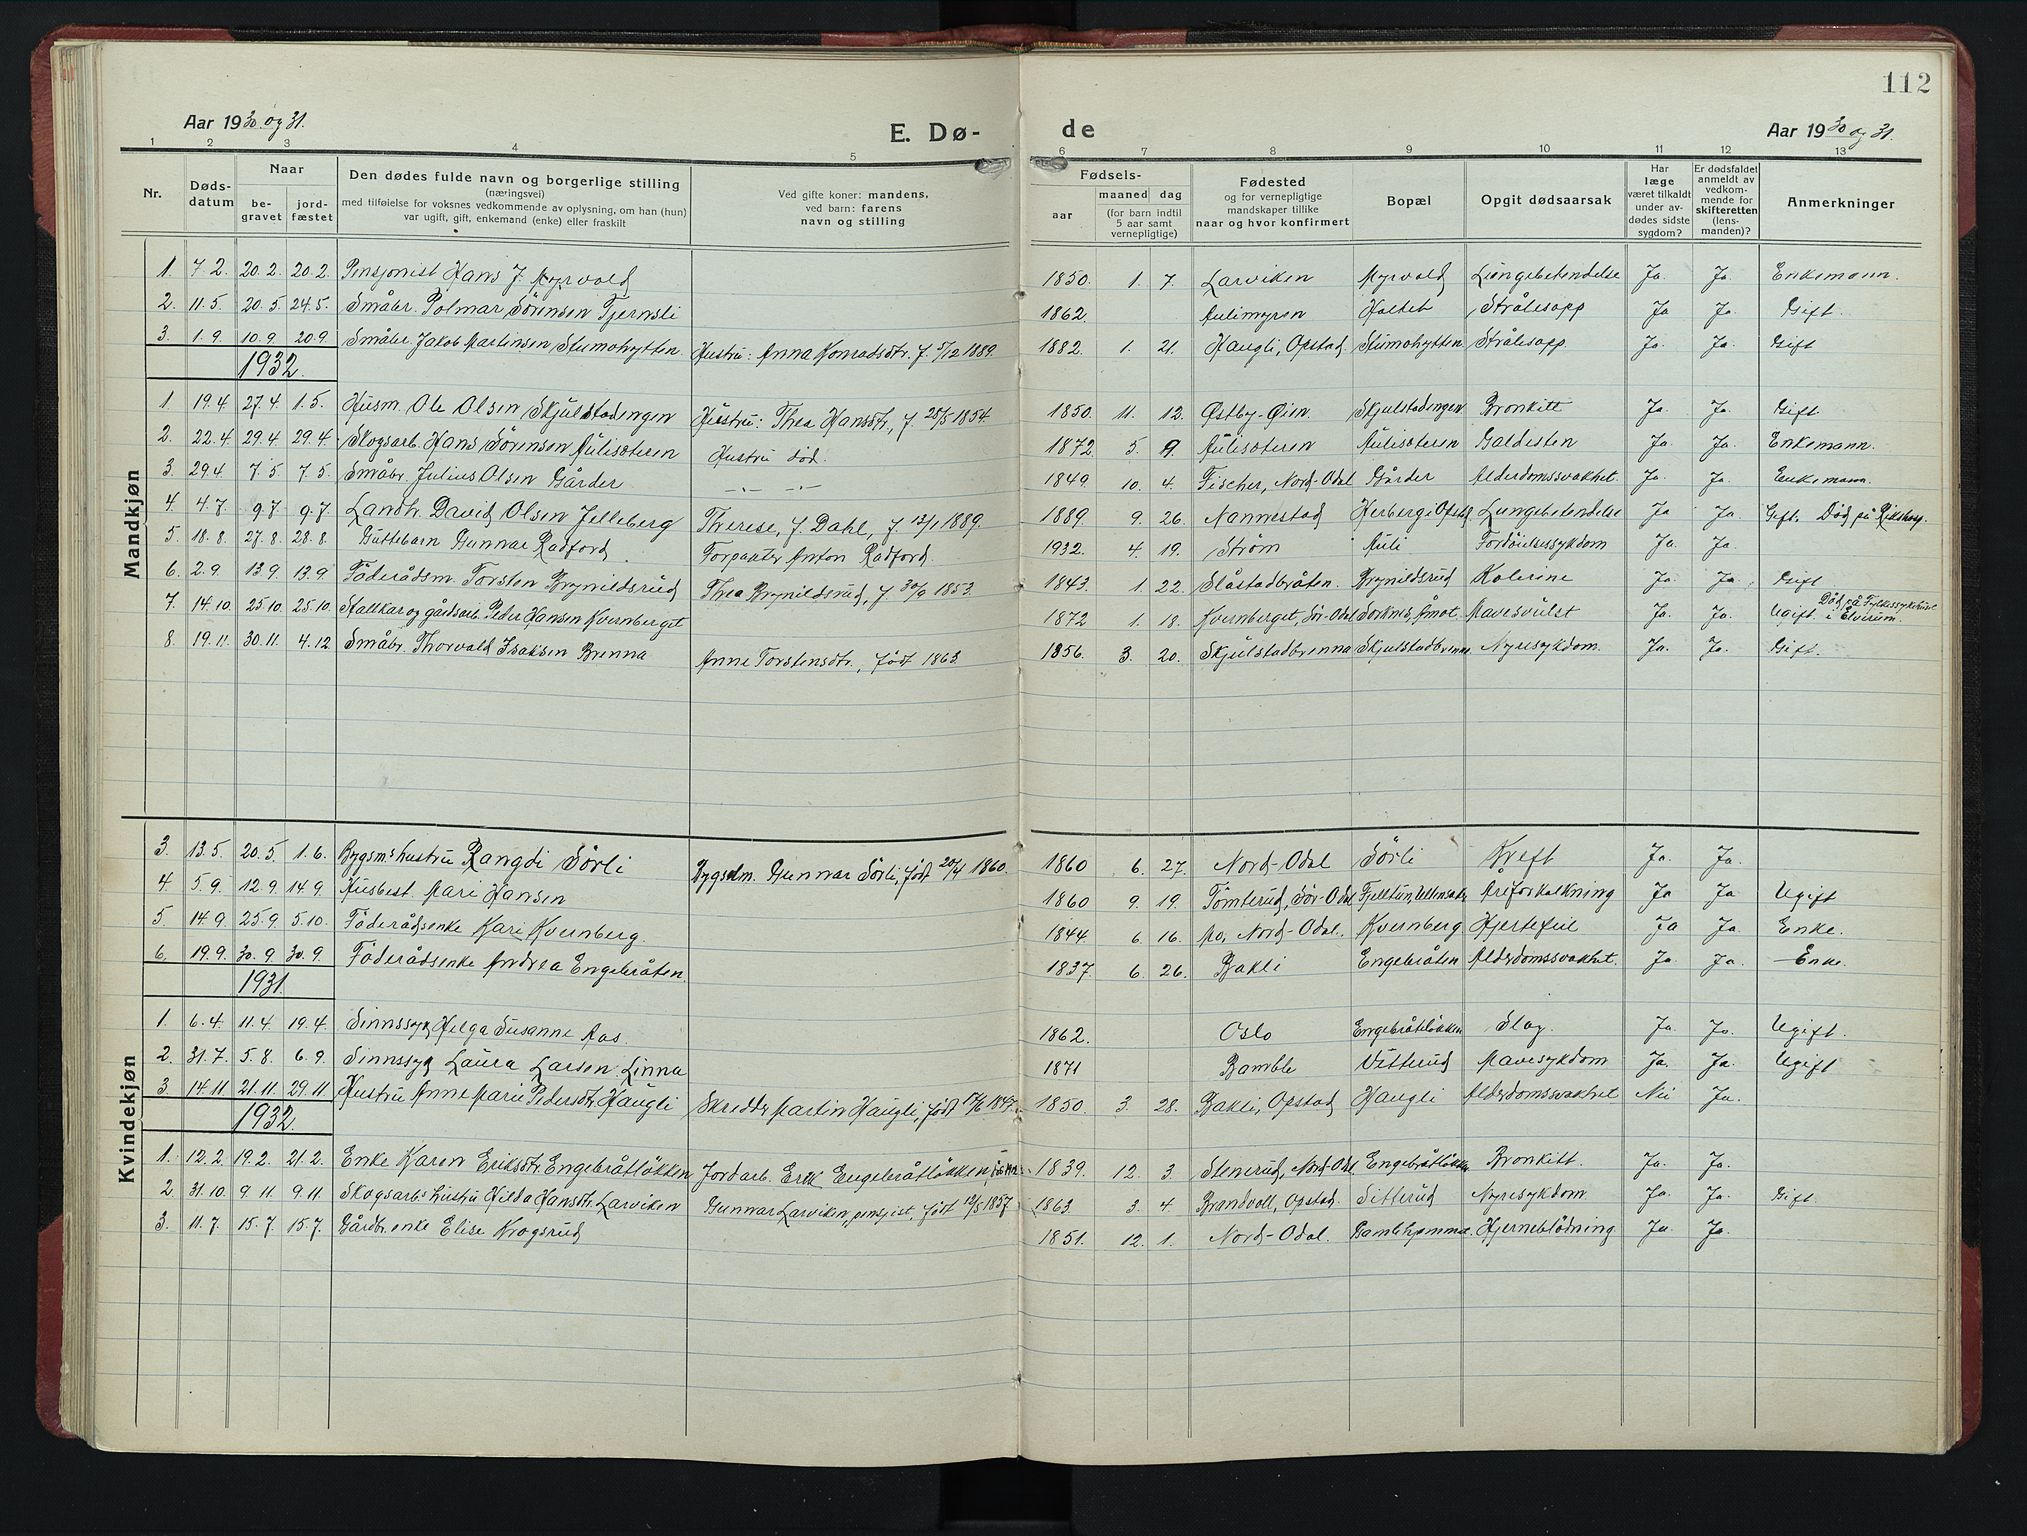 112
Aar 1930 og 31.
E. Dø-
de
Aar 1930 og 31.
1 2 3 4 5 6 7 8 9 10 11 12 13
Nr. Døds-datum Naar be-gravet jord-fæstet
Den dødes fulde navn og borgerlige stilling
(næringsvei)
med tilføielse for voksnes vedkommende av oplysning, om han (hun)
var ugift, gift, enkemand (enke) eller fraskilt
Ved gifte koner: mandens,
ved barn: farens
navn og stilling
Fødsels-
aar maaned dag
(for barn indtil
5 aar samt
vernepligtige)
Fødested
og for vernepligtige
mandskaper tillike
naar og hvor konfirmert
Bopæl
Opgit dødsaarsak
Har
læge
været tilkaldt
under av-
dødes sidste
sygdom?
Er dødsfaldet
anmeldt av
vedkom-
mende for
skifteretten
(lens-
manden)?
Anmerkninger
Mandkjøn
1. 7.2. 20.2. 20.2. Pensjonist Hans J. Myrvold 1850. 1. 7. Larviken Myrvold Lungebetendelse Ja. Ja. Enkemann.
2. 11.5. 20.5 24.5. Småbr. Polmar Sörensen Tjernsli 1862. Aulimyren Haltet Slag Ja Ja. Gift.
3. 1.9. 10.9. 20.9. Småbr. Jakob Martinsen Stumohytten Hustru: Anna Konradsdtr. f. 5/12 1889. 1882. 1. 21. Haugli, Opstad Stumohytten Ja. Ja. Gift
1932.
1. 19.4. 27.4. 1.5. Husm. Ole Olsen Skjulstadengen Hustru: Thea Hansdtr., f. 25/5 1854. 1850. 11. 12. Østby-Øien. Skjulstadengen Bronkitt Ja. Ja. Gift.
2. 22.4. 29.4. 29.4. Skogsarb. Hans Sörensen Aulisæteren Hustru död. 1872. 5. 9. Aulisæteren Aulisæteren Galdesten Ja. Ja. Enkemann.
3. 29.4. 7.5. 7.5. Småbr. Julius Olsen Gårder —.— —.— 1849. 10. 4. Fischer, Nord-Odal Gårder Alderdomssvakhet. Ja. Ja. Enkemann.
4. 4.7. 9.7 9.7 Landh. David Olsen Jelleberg Therese, f. Dahl, f. 12/1 1889. 1889. 9. 26. Nannestad Herberg i Opstad Lungebetendelse Ja. Ja. Gift. Död på Rikshosp.
5. 18.8. 27.8. 28.8. Guttebarn Gunnar Radford Forpakter Anton Radford. 1932. 4. 19. Ström Auli Fordöielsessykdom Ja. Ja.
6. 2.9. 13.9. 13.9. Föderådsm. Torsten Brynildsrud Thea Brynildsrud, f. 30/9 1853. 1843. 1. 22. Slåstadbråten. Brynildsrud Kolerine Ja. Ja. Gift.
7. 14.10. 25.10. 25.10. Stallkar og gårdsarb. Peder Hansen Kvernberget 1872 1. 18. Kvernberget, Sör-Odal Åmot. Mavesvulst Ja. Ja. Ugift. Död på Fylkessykehuset i Elverum.
8. 19.11. 30.11. 4.12. Småbr. Thorvald Isaksen Brenna Anne Torstensdtr., født 1863. 1856. 3. 20. Skjulstadbrenna Skjulstadbrenna Nyresykdom. Ja. Ja. Gift.
Kvindekjøn
3. 13.5. 20.5. 1.6. Bygsm's hustru Rangdi Sörli Bygselm. Gunnar Sörli, født 20/4 1860. 1860 6. 27. Nord-Odal Sörli Kreft Ja. Ja.
4. 5.9. 12.9. 14.9. Husbest. Mari Hansen 1860 9. 19. Tömterud, Sör-Odal Fjelltun, Ullensaker Åreforkalkning Ja Ja. Ugift
5. 14.9. 25.9. 5.10. Föderådsenke Kari Kvernberg. 1844 6. 16. Mo, Nord-Odal. Kvernberg Hjertefeil Ja Ja. Enke.
6. 19.9. 30.9. 30.9. Föderådsenke Andrea Engebråten. 1837 6. 26. Bakli Engebråten Alderdomssvakhet. Ja. Ja. Enke.
1931.
1. 6.4. 11.4. 19.4. Sinnssyg Helga Susanne Aas. 1862. Oslo Engebråtlökken Slag. Ja. Ja. Ugift.
2. 31.7. 5.8. 6.9. Sinnssyg Laura Larsen Linna 1871 Bamble Vitterud Mavesykdom Ja. Ja. Ugift
3. 14.11. 21.11. 29.11. Hustru Anne Marie Pedersdtr. Haugli Skredder Martin Haugli, født 17/6 1847. 1850. 3. 28. Bakli, Opstad Haugli Alderdomssvakhet Nei Ja.
1932.
1. 12.2. 19.2. 21.2. Enke Karen Eriksdtr. Engebråtlökken Jordarb. Erik Engebråtlökken, 1839. 12. 3. Stenerud, Nord-Odal. Engebråtlökken Bronkitt. Ja. Ja.
2. 31.10. 9.11. 9.11. Skogsarb's hustru Hilda Hansdtr. Larviken Gunnar Larviken, pensjist, født 12/5 1857. 1863. 3. 4. Brandvoll, Opstad. Sitterud Nyresykdom Ja. Ja. Gift.
3. 11.7. 15.7. 15.7. Gårdbr.enke Elise Krogsrud 1851. 12. 1. Nord-Odal. Gamlehjemmet. Hjerneblödning Ja. Ja.